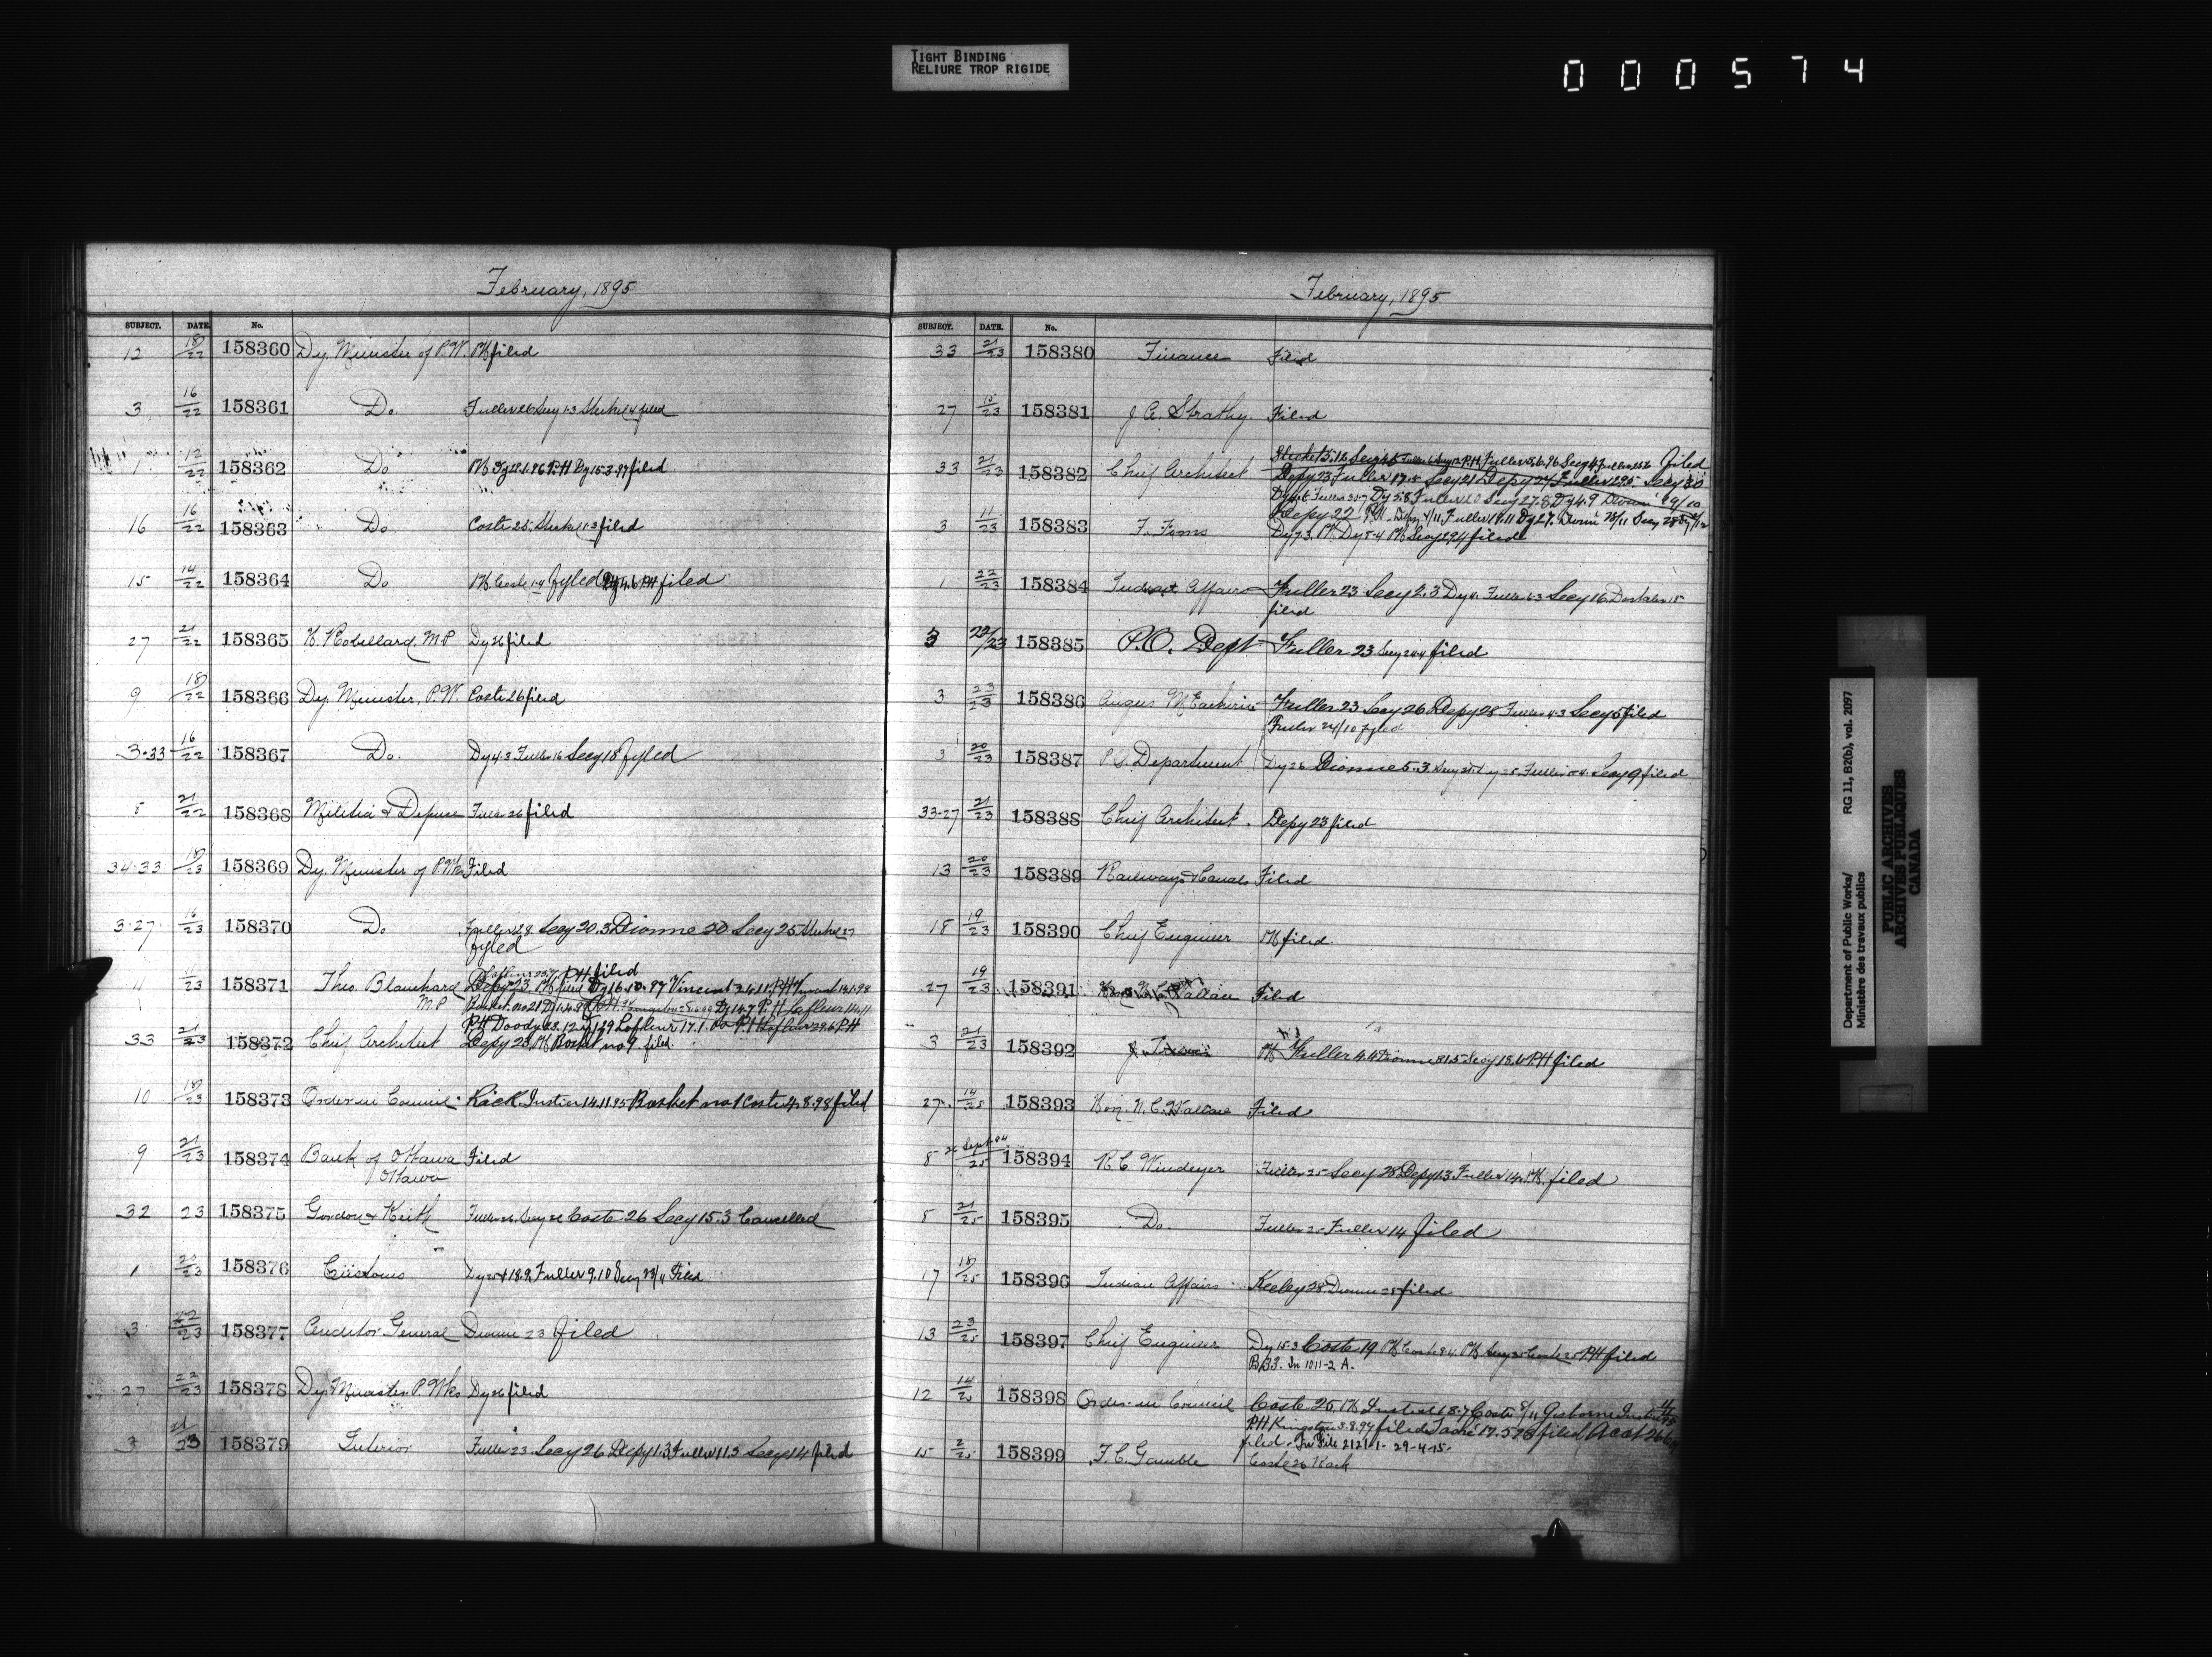 TIGHT BINDING
RELIURE TROP RIGIDE
000574
February, 1895
SUBJECT. DATE. No.
12 18/22 158360 Dy. Minister of P.W. PH filed
3 16/22 158361 Do Fuller 26 Secy 1.3 Steckel 4 filed
1 12/22 158362 Do PH Dy 22.1.96 PH Dy 15.3.97 filed
16 16/22 158363 Do Coste 25. Steckel 1.3 filed
15 14/22 158364 Do PH Coste 1.4 fyled Dy 4.6 PH filed
27 21/22 158365 H. Robillard, M.P. Dy 26 filed
9 18/22 158366 Dy. Minister, P.W. Coste 26 filed
3-33 16/22 158367 Do. Dy 4.3 Fuller 16 Secy 18 fyled
8 21/22 158368 Militia & Defence Fuller 26 filed
34-33 18/23 158369 Dy. Minister of P. Wks Filed
3-27 16/23 158370 Do Fuller 28 Secy 20.3 Dionne 20 Secy 25 Steckel 27
fyled
Lafleur PH filed
11 1/23 158371 Theo. Blanchard Depy 23. PH Dy 16.10.97 Vincent 24.11 PH Vincent
M.P. Basket no 21 Dy 14.7 P.H Lafleur 14.11
PH Doody 23.12 Lafleur 17.1.00 P.H Lafleur 29.6 PH
33 21/23 158372 Chief Architect Depy 23, PH Basket no 9. filed.
10 18/23 158373 Order in Council Rack. Justice 14.11.95 Basket no 1 Coste 4.8.98 filed
9 21/23 158374 Bank of Ottawa Filed
Ottawa
32 23 158375 Gordon & Keith Fuller 26. Secy 26 Coste 26 Secy 15.3 Cancelled
1 20/23 158376 Customs Dy 25 18.9, Fuller 9.10 Secy 23/11 Filed
3 22/23 158377 Auditor General Dionne 23 filed
27 22/23 158378 Dy. Minister P. Wks Dy 26 filed
3 21/23 158379 Interior Fuller 23 Secy 26 Depy 1.3 Fuller 11.3 Secy 14 filed
February, 1895
SUBJECT. DATE. No.
33 21/23 158380 Finance Filed
27 15/23 158381 J. A. Strathy. Filed
Filed
33 21/23 158382 Chief Architect Depy 23 Fuller 17 Secy 21 Depy 24 Fuller 29.5 Secy 30
Fuller 30.7 Dy 5.8 Fuller Secy 27.8 Dy 4.9
Depy 22 PH. Depy 4/11, Fuller 18.11 Dy 27.
3 11/23 158383 F. Toms Dy 7.3. PH Dy 5.4 PH Secy 29.4 filed
1 22/23 158384 Indian Affairs Fuller 23 Secy 2.3 Dy 4. Fuller 6.3 Secy 16
filed
3 22/23 158385 P.O. Dept Fuller 23 Secy 24.4 filed
3 23/23 158386 Angus McEachern Fuller 23 Secy 26 Depy 28 Fuller 4.3 Secy 5 filed
Fuller 24/10 fyled
3 20/23 158387 P.O. Department Dy 26 Dionne 5.3 Secy Dy Fuller Secy 9 filed
33-27 21/23 158388 Chief Architect. Depy 23 filed
13 20/23 158389 Railways & Canals Filed
18 19/23 158390 Chief Engineer PH filed
27 19/23 158391 Filed
3 21/23 158392 PH Fuller 4.4 Dionne 31.5 Secy 18.6 PH filed
27. 14/25 158393 Hon. N. C. Wallace Filed
8 26 Sept 94/25 158394 R C Windeyer Fuller 25 Secy 28 Depy 1.3 Fuller 14. PH. filed
8 21/25 158395 Do. Fuller 25 Fuller 14 filed
17 18/25 158396 Indian Affairs Keeley 28. Dionne 28 filed
13 23/25 158397 Chief Engineer Dy 15.3 Coste 19 PH Coste 8.4. PH Secy Coste PH filed
B 33. In 1011-2 A.
12 14/25 158398 Order in Council Coste 25. PH Justice 18.7 Coste 8/11 Gisborne Justice
PH Kingston 3.8.97 filed Taché 17.5.98 filed, Acct 26.6
filed. In File 2121-1-29-4-15.
15 2/25 158399 F. C. Gamble Coste 26 Rack
Department of Public Works/
Ministère des travaux publics
RG 11, B2(b), vol. 2097
PUBLIC ARCHIVES
ARCHIVES PUBLIQUES
CANADA